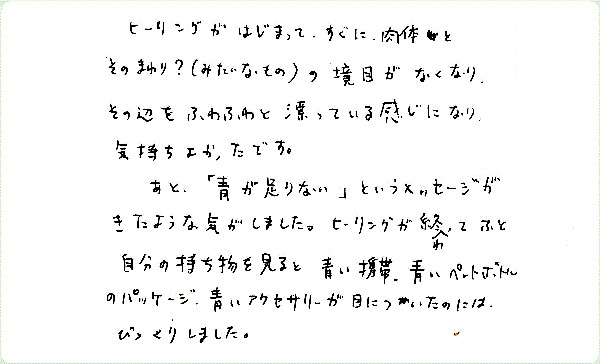 ヒーリングがはじまって、すぐに、肉体と
そのまわり？(みたいなもの)の境目がなくなり、
その辺をふわふわと漂っている感じになり、
気持ちよかったです。
あと、「青が足りない」というメッセージが
きたような気がしました。ヒーリングが終わってふと
自分の持ち物を見ると青い携帯、青いペットボトル
のパッケージ、青いアクセサリーが目についたのには、
びっくりしました。